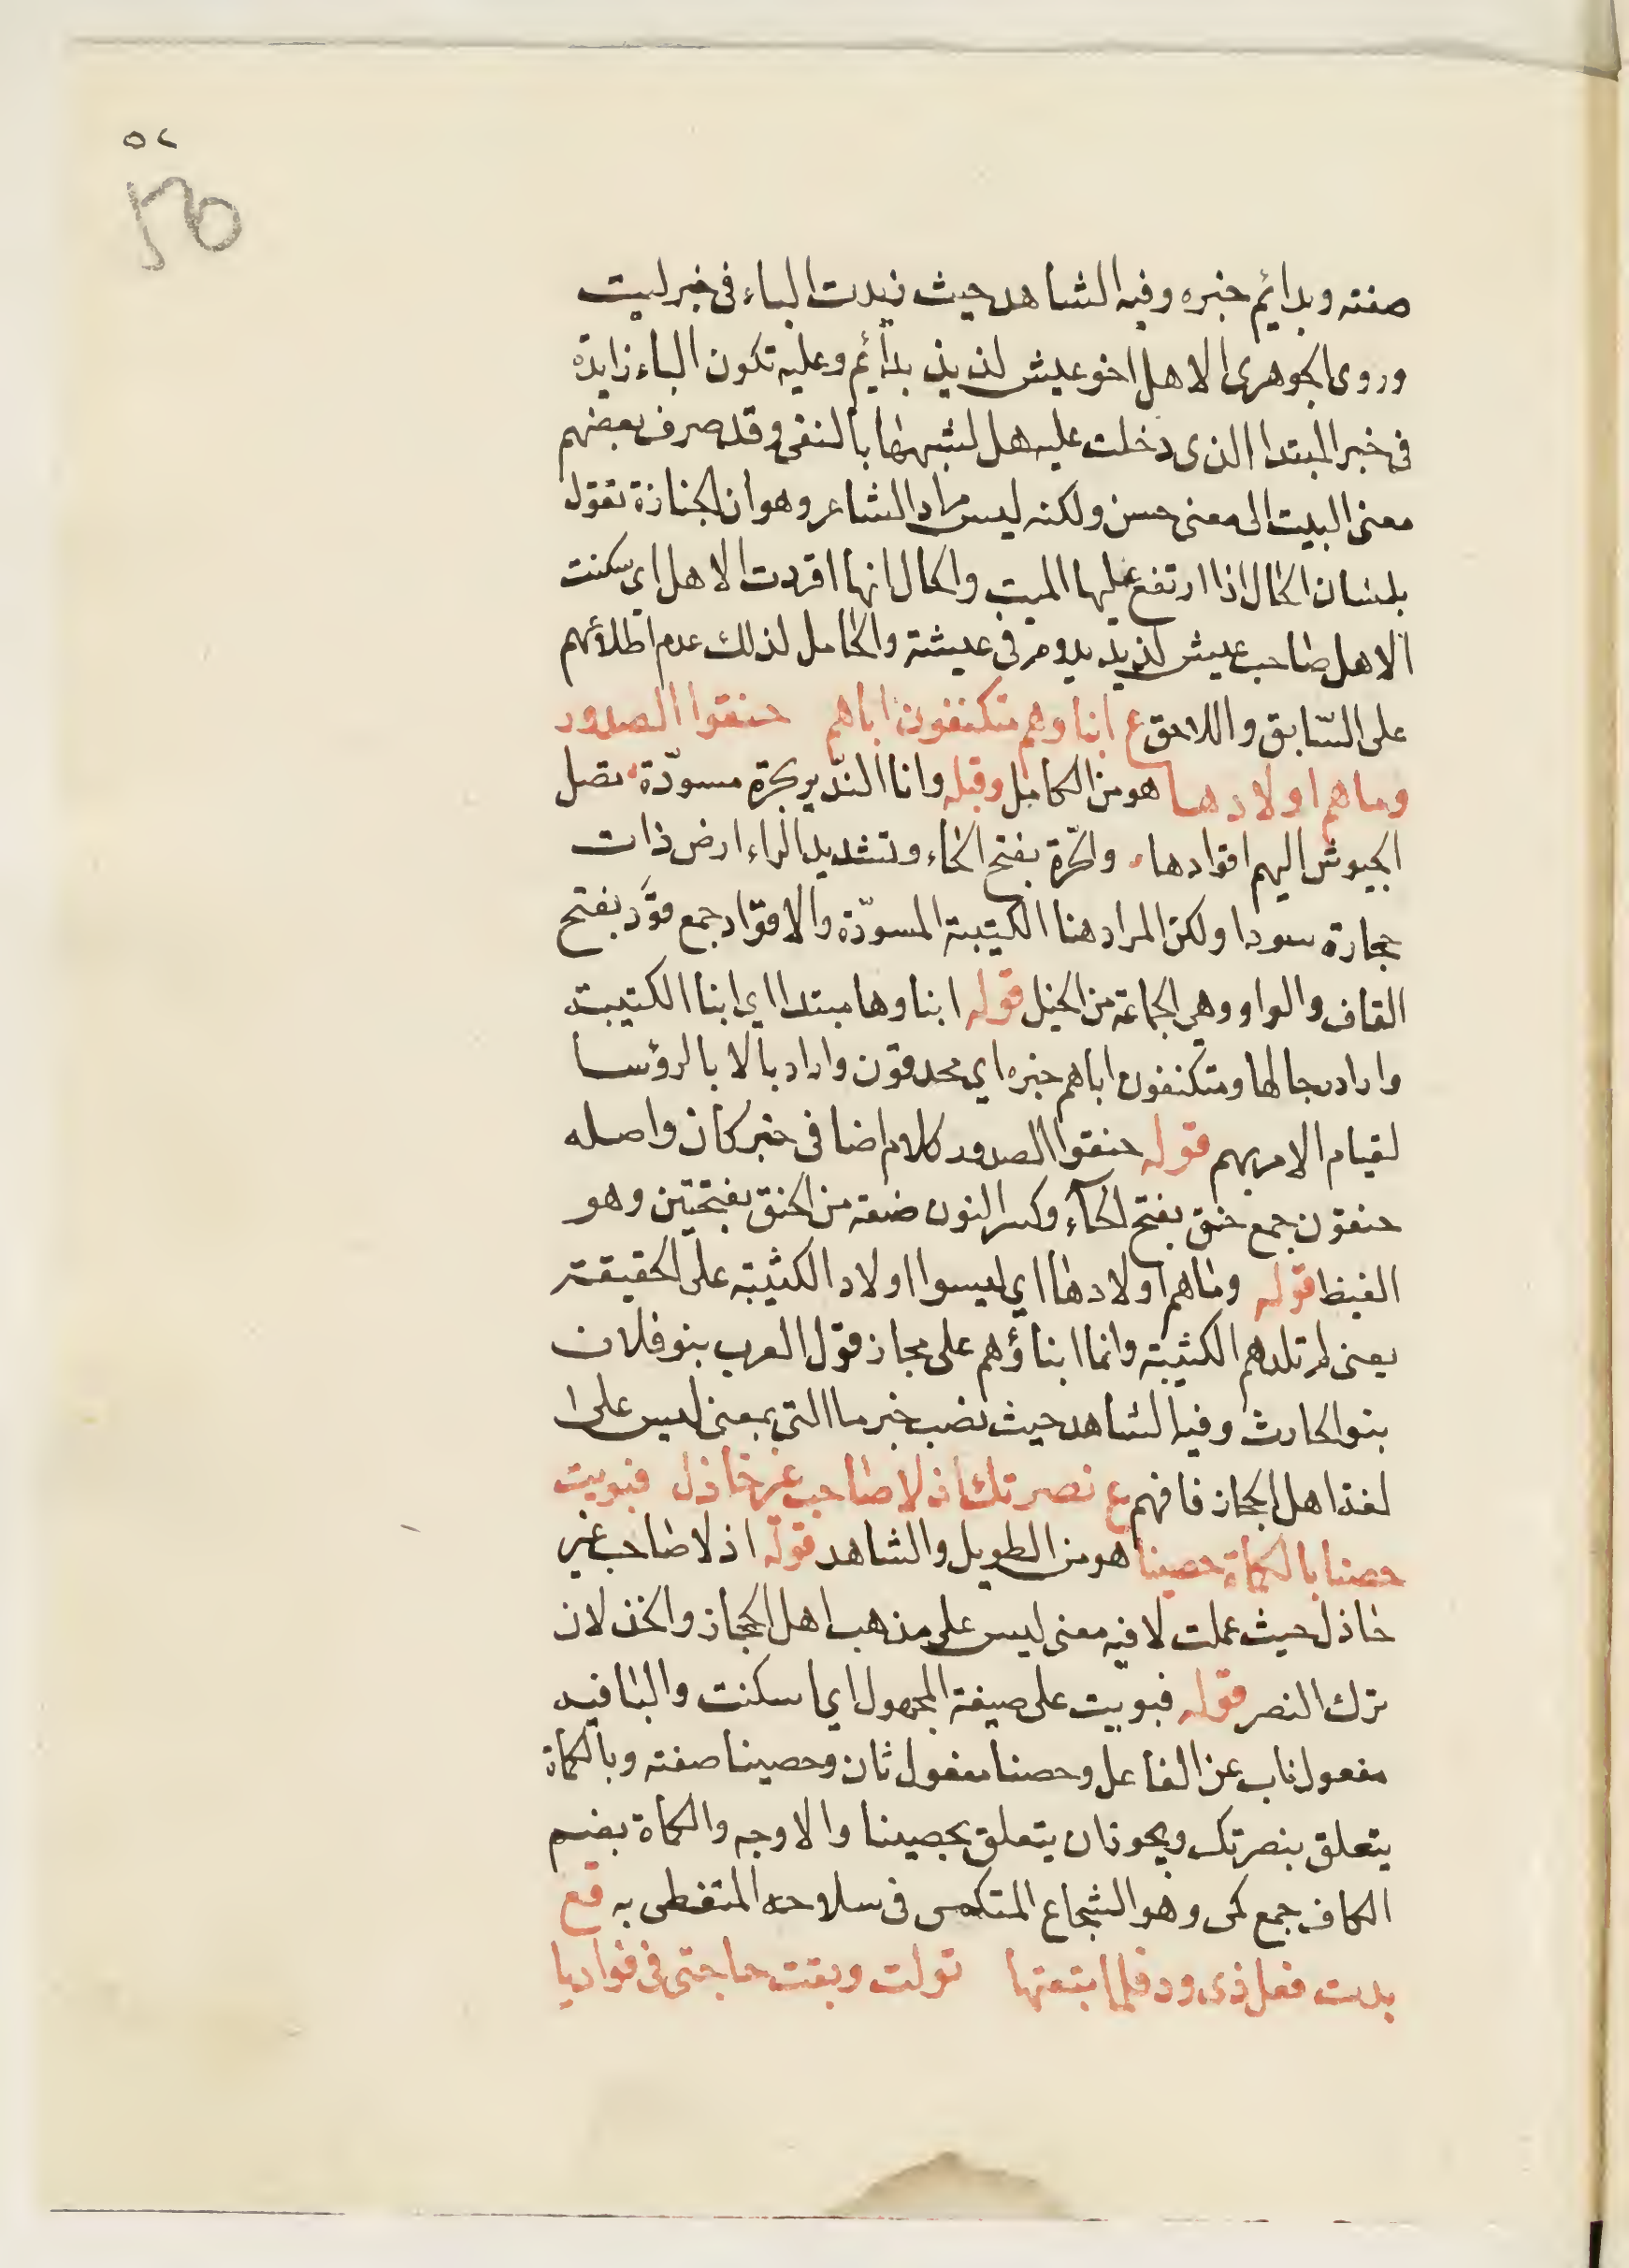 ٥٢
٥٢
صفته وبدائم خبره وفيه الشاهد حيث زيدت الباء فى خبر ليت
وروى الجوهرى الا هل اخو عيش لذيذ بدائم وعليه تكون الباء زايدة
فى خبر المبتدا الذى دخلت عليه هل لشبهها بالنفى وقد صرف بعضهم
معنى البيت الى معنى حسن ولكنه ليس مراد الشاعر وهو ان الجنازة تقول
بلسان الحال اذا ارتفع عليها الميت والحال انها اقردت الا هل اى سكنت
الا هل صاحب عيش لذيذ يدوم فى عيشته والحامل لذلك عدم اطلائهم
على السّابق واللاحق ع ابناوهم متكنفون اباهم حنقوا الصدور
وما هم اولادها هو من الكامل وقبله وانا النذير بحرة مسودّة تصل
الجيوش اليهم اقوادها والحرّة بفتح الحاء وتشديد الراء ارض ذات
حجارة سودا ولكن المراد هنا الكتيبة المسودّة والاقوّاد جمع قوَد بفتح
القاف والواو وهى الجماعة من الخيل قوله ابناوها مبتدا اى ابنا الكتيبة
واراد رجالها ومتكنفون اباهم خبره اى محدقون واراد بالابا الرؤسا
لقيام الامر بهم قوله حنقوا الصدور كلام اضافى خبر كان واصله
حنقون جمع حنق بفتح الحآء وكسر النون صفة من الحنق بفتحتين وهو
الغيظ قوله وما هم اولادها اى ليسوا اولاد الكثيبة على الحقيقة
يعنى لم تلدهم الكثيبة وانما ابناؤهم على مجاز قول العرب بنو فلان
بنو الحارث وفيه الشاهد حيث نصب خبر ما التى بمعنى ليس على ا
لغة اهل الحجاز فافهم ع نصرتك اذ لا صاحب غير خاذل فبويت
حصنا بالكماة حصينا هو من الطويل والشاهد قوله اذ لا صاحب غير
خاذل حيث عملت لا فيه معنى ليس على مذهب اهل الحجاز والخذلان
ترك النصر قوله فبويت على صيغة المجهول اى اسكنت والتا فيه
مفعول ناب عن الفاعل وحصنا مفعول ثان وحصينا صفته وبالكماة
يتعلق بنصرتك ويجوز ان يتعلق بحصينا والاوجه والكماة بضم
الكاف جمع كمى وهو الشجاع المتكمى فى سلاحه المتغطى به قع
بدت فعل ذى ود فلما ابتعتها تولت وبقت حاجتى فى فواديا